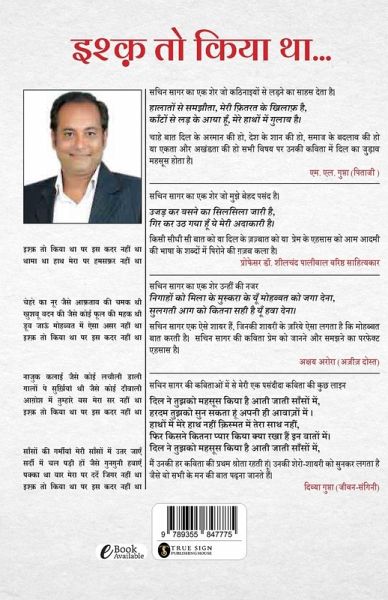 इश्क़ तो किया था...
सचिन सागर का एक शेर जो कठिनाइयों से लड़ने का साहस देता है।
हालातों से समझौता, मेरी फ़ितरत के खिलाफ़ है,
काँटों से लड़ के आया हूँ, मेरे हाथों में गुलाब है।
चाहे बात दिल के अरमान की हो, देश के शान की हो, समाज के बदलाव की हो
या एकता और अखंडता की हो सभी विषय पर उनकी कविता में दिल का जुड़ाव
महसूस होता है।
एम. एल. गुप्ता (पिताजी)
सचिन सागर का एक शेर जो मुझे बेहद पसंद है।
उजड़ कर बसने का सिलसिला जारी है,
गिर कर उठ गया हूँ ये मेरी अदाकारी है।
किसी सीधी सी बात को या दिल के ज़ज़्बात को या प्रेम के एहसास को आम आदमी
की भाषा के शब्दों में पिरोने की गज़ब कला है।
प्रोफेसर डॉ. शीलचंद पालीवाल वरिष्ठ साहित्यकार
सचिन सागर का एक शेर उन्हीं की नजर
निगाहों को मिला के मुस्करा के यूँ मोहब्बत को जगा देना,
सुलगती आग को कितना सही है यूँ हवा देना।
सचिन सागर एक ऐसे शायर हैं, जिनकी शायरी के ज़रिये ऐसा लगता है कि मोहब्बत
बात करती है। सचिन सागर की कविता प्रेम को जानने और समझने का परफेक्ट
एहसास है।
अक्षय अरोरा (अज़ीज़ दोस्त)
सचिन सागर की कविताओं में से मेरी एक पसंदीदा कविता की कुछ लाइन
दिल ने तुझको महसूस किया है आती जाती साँसों में,
हरदम तुझको सुन सकता हूँ अपनी ही आवाज़ों में ।
हाथों में मेरे हाथ नहीं क़िस्मत में तेरा साथ नहीं,
फिर किसने कितना प्यार किया क्या रखा हैं इन बातों में।
दिल ने तुझको महसूस किया है आती जाती साँसों में,
मैं उनकी हर कविता की प्रथम श्रोता रहती हूं। उनकी शेरो-शायरी को सुनकर लगता है
जैसे वो सभी के मन की बात पढ़ना जानते है।
दिव्या गुप्ता (जीवन-संगिनी)
इश्क़ तो किया था पर इस कदर नहीं था
थामा था हाथ मेरा पर हमसफ़र नहीं था
चेहरे का नूर जैसे आफ़ताब की चमक थी
खुशबू बदन की जैसे कोई फूल की महक थी
डूब जाऊं मोहब्बत में ऐसा असर नहीं था
इश्क़ तो किया था पर इस कदर नहीं था
नाज़ुक कलाई जैसे कोई लचीली डाली
गालों पे सुर्ख़ियां थी जैसे कोई दीवाली
आग़ोश में तुम्हारे बस मेरा सर नहीं था
इश्क़ तो किया था पर इस कदर नहीं था
साँसों की गर्मीयां मेरी साँसों में उतर जाएं
सर्दी में चल पड़ी हों जैसे गुनगुनी हवाएं
पक्का था यार मेरा पर दर्दे जिगर नहीं था
इश्क़ तो किया था पर इस कदर नहीं था
eBook Available
9 789355 847775
TRUE SIGN
PUBLISHING HOUSE